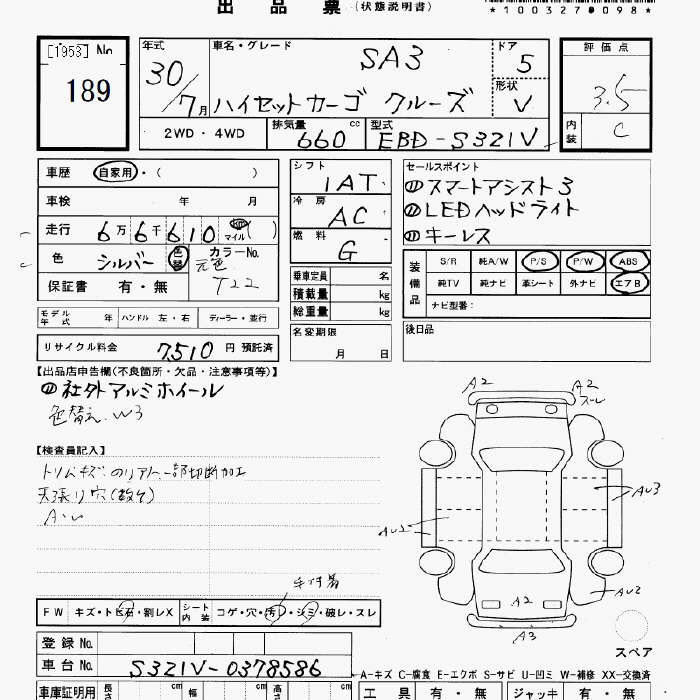 出 品 票 (状態説明書)
*100327 098*
[1953] No
189
年式
30/7月
車名・グレード
SA3
ハイゼットカーゴ クルーズ
ドア
5
形状
V
評価点
3.5
内装
C
2WD・4WD
排気量
660 cc
型式
EBD-S321V
車歴 自家用・( )
車検 年 月
走行 6万6千610 km マイル ( )
色 シルバー 色替 カラーNo.
元色 T22
保証書 有・無
シフト
IAT
冷房
AC
燃料
G
乗車定員 名
積載量 kg
総重量 kg
セールスポイント
スマートアシスト3
LEDヘッドライト
キーレス
装備品
S/R 純A/W P/S P/W ABS
純TV 純ナビ 革シート 外ナビ エアB
ナビ型番:
モデル年式 年 ハンドル 左・右 ディーラー・並行
名変期限
月 日
後日品
リサイクル料金 7,510 円 預託済
【出品店申告欄(不良箇所・欠品・注意事項等)】
社外アルミホイール
色替え W3
【検査員記入】
トリムキズ のリアトリム一部切断加工
天張り穴(数ヶ)
A・U
A2
A2
スレ
AU2
AU3
AU2
A2
A3
スペア
手付着
FW キズ・トビ石・割レX シート内装 コゲ・穴・汚レ・シミ・破レ・スレ
登録 No.
車台 No. S321V-0378586
A-キズ C-腐食 E-エクボ S-サビ U-凹ミ W-補修 XX-交換済
車庫証明用 長さ cm 幅 cm 高さ cm
工具 有・無 ジャッキ 有・無